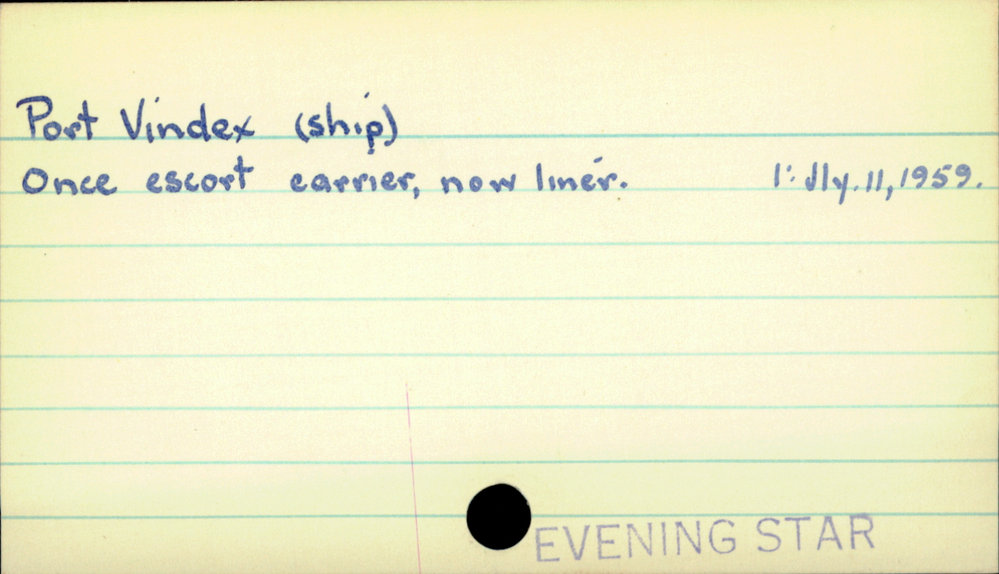 Port Vindex (ship)
Once escort carrier, now liner. 1: Jly. 11, 1959.
EVENING STAR